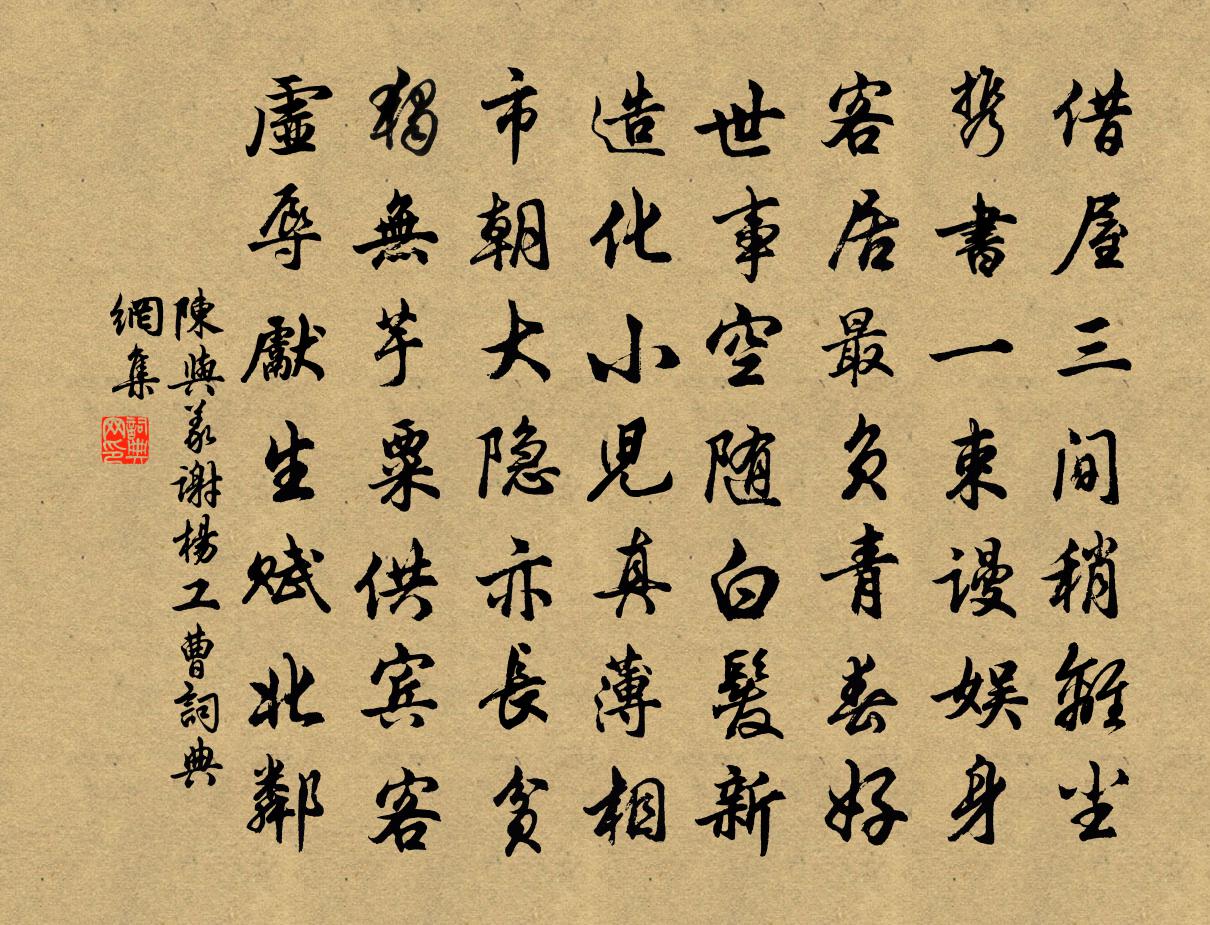 借屋三间稍離尘
携書一束谩娱身
客居最负青春好
世事空随白髮新
造化小児真薄相
市朝大隐亦長贫
猲無芋粟供宾客
虛辱獻生赋北鄰
陳與義谢楊工曹詞典
網集
詞典
网印